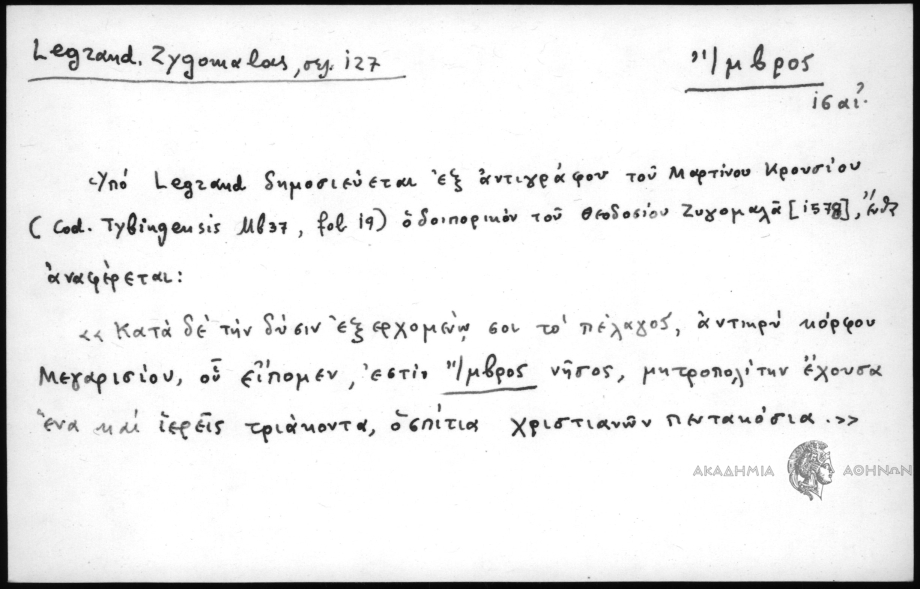 Legrand. Zygomalas, σελ. 127
Ἴμβρος
16 αἰ.
Ὑπό Legrand δημοσιεύεται ἐξ ἀντιγράφου τοῦ Μαρτίνου Κρουσίου
(Cod. Tybingensis Mb37, fol 19) ὁδοιπορικόν τοῦ Θεοδοσίου Ζυγομαλᾶ [1578], ἔνθα
ἀναφέρεται:
«Κατὰ δέ τήν δύσιν ἐξερχομένῳ σοι τό πέλαγος, ἀντικρύ κόρφου
Μεγαρισίου, οὗ εἴπομεν, ἐστίν Ἴμβρος νῆσος, μητροπολίτην ἔχουσα
ἕνα καί ἱερεῖς τριάκοντα, ὁσπίτια χριστιανῶν πεντακόσια.»
ΑΚΑΔΗΜΙΑ ΑΘΗΝΩΝ